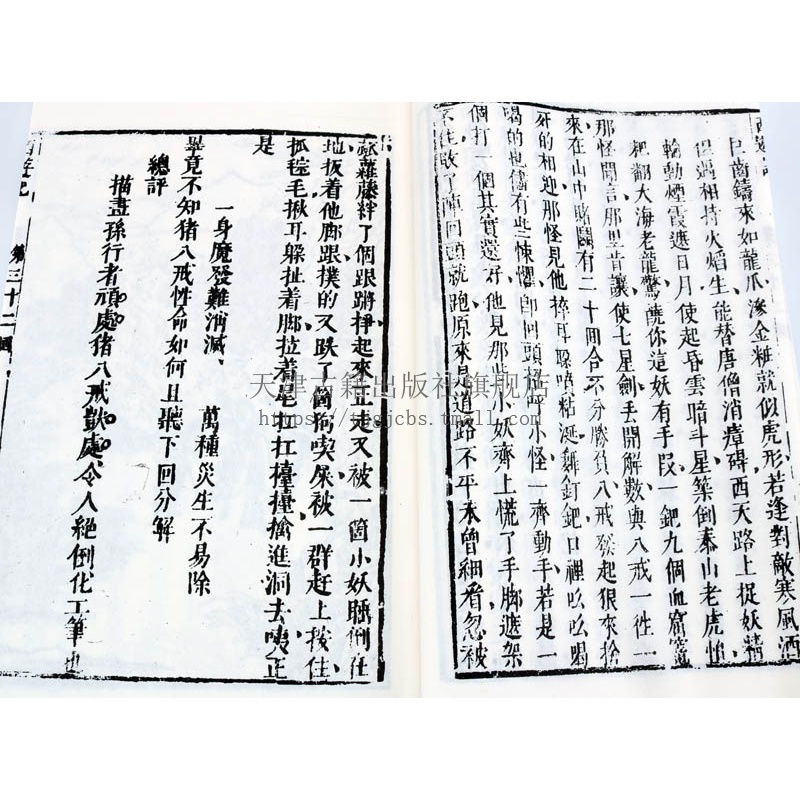 巨齒鑄來如龍爪滲金粧就似虎形若逢對敵寒風洒
但遇相持火焰生能替唐僧消瘴碍西天路上捉妖精
輪動煙霞遮日月使起昏雲暗斗星築倒泰山老虎怕
掀翻大海老龍驚饒你這妖有手段一鈀九個血窟窿
那怪聞言那里肯讓使七星劍丟開解數與八戒一往一
來在山中賭鬪有二十囬合不分勝負八戒發起狠來捨
死的相迎那怪見他捽耳朶噴粘涎舞釘鈀口裡吆吆喝
喝的也儘有些悚懼即回頭招呼小怪一齊動手若是一
個打一個其實還好他見那些小妖齊上慌了手脚遮架
不住敗了陣回頭就跑原來是道路不平未曾細看忽被
蓏蘿藤絆了個踉蹡掙起來正走又被一箇小妖睡倒在
地扳着他脚跟撲的又跌了箇狗喫屎被一群赶上按住
抓鬃毛揪耳朶扯着脚拉着尾扛扛擡擡擒進洞去咦正
是
一身魔發難消滅、 萬種災生不易除
畢竟不知猪八戒性命如何且聽下回分解
總評
描畫孫行者頑處猪八戒獃處令人絕倒化工筆也
西遊記 第三十二囬
天津古籍出版社旗舰店
https://tjgjcbs.tmall.com